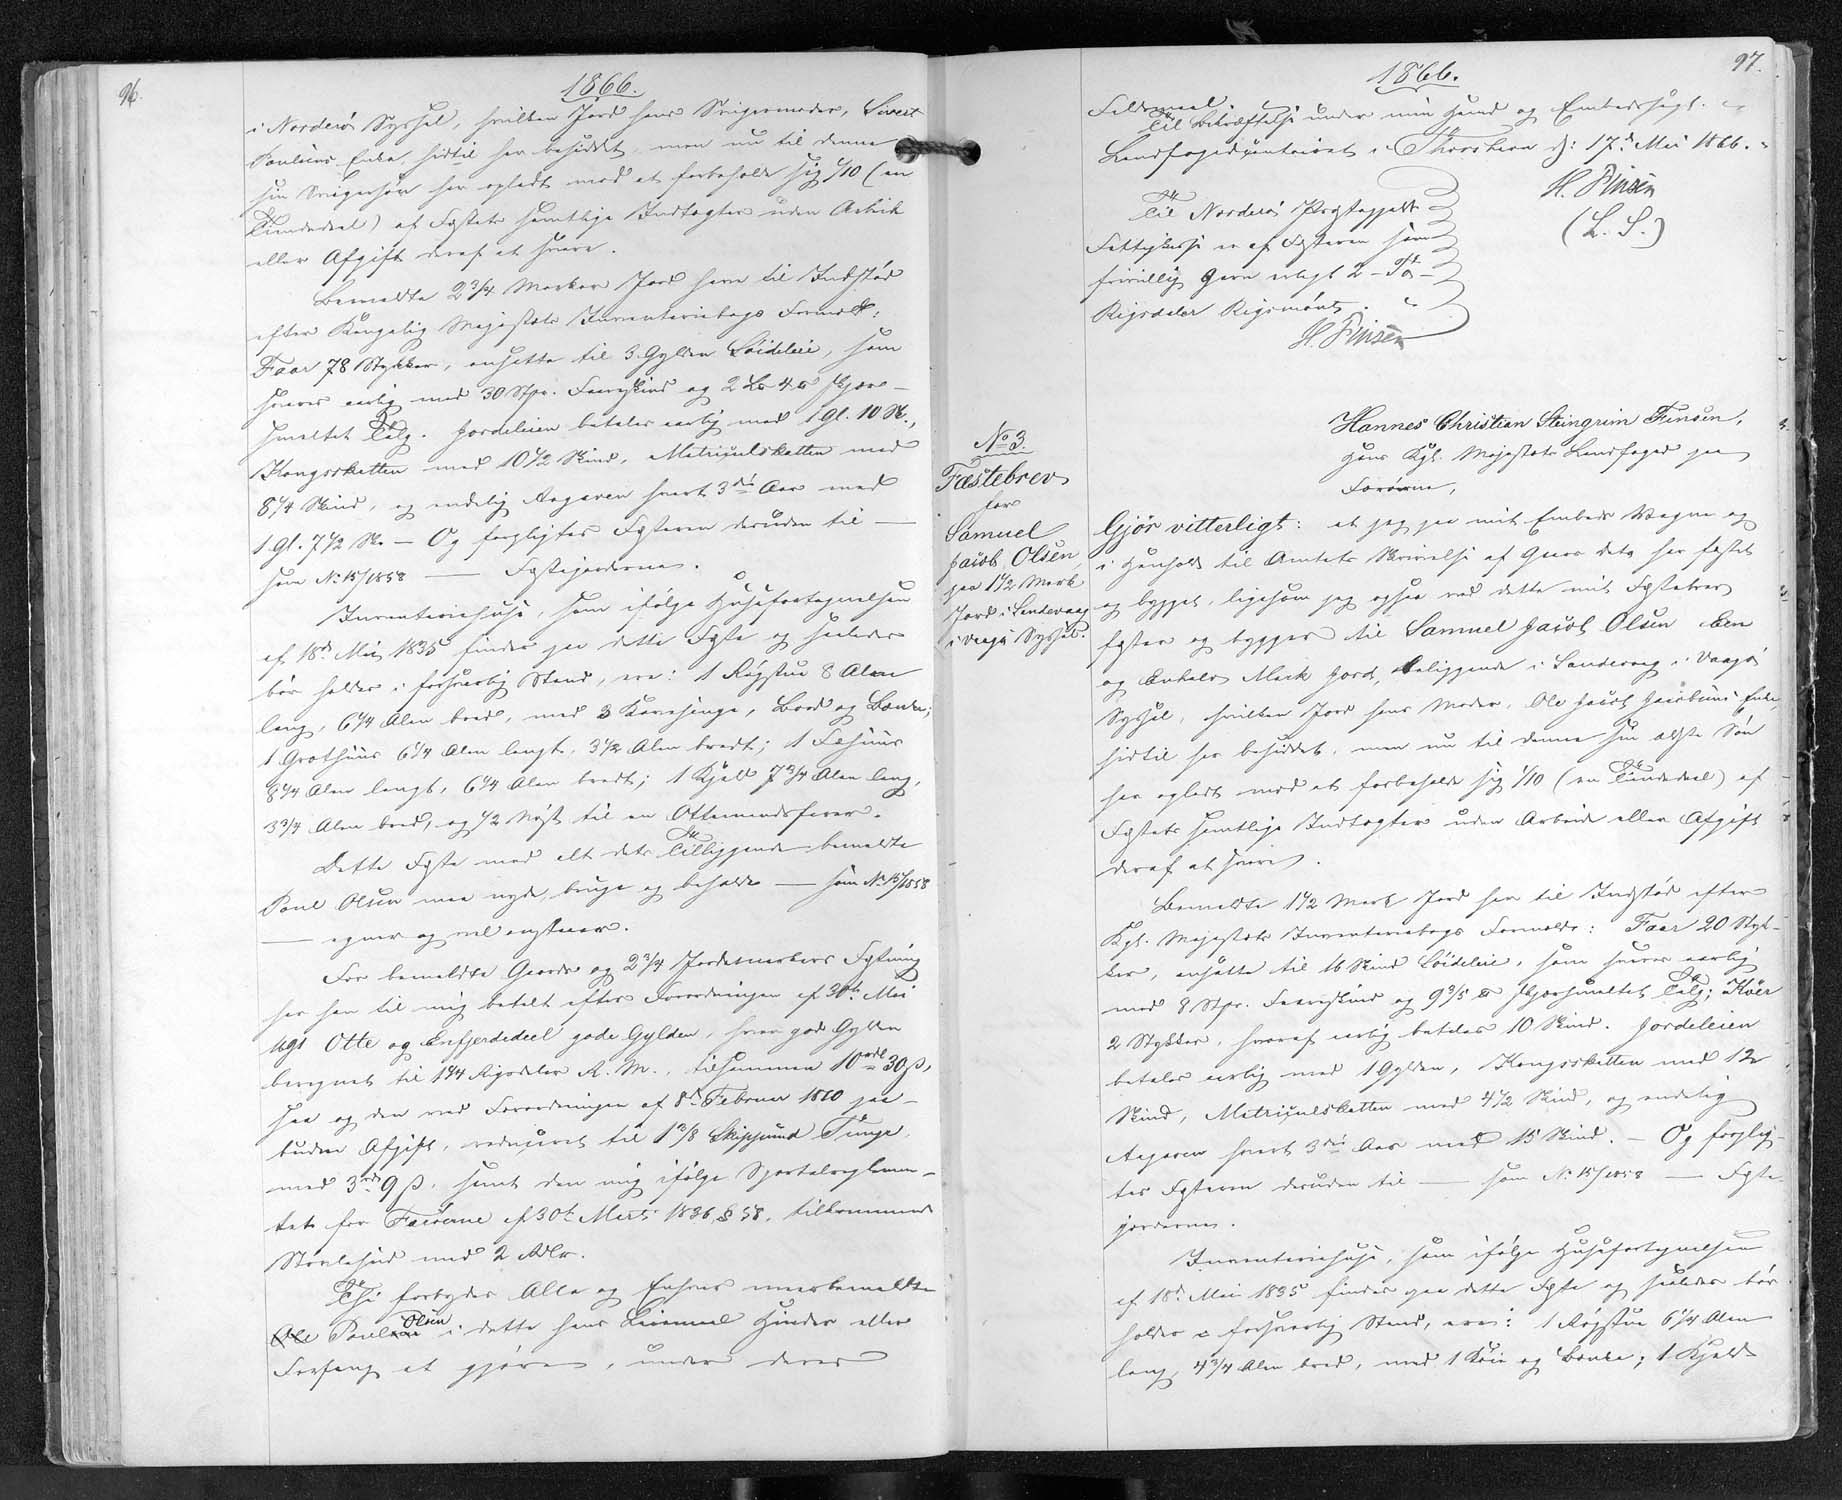 96.
1866.
i Norderø Syssel, hvilken Jord hans Svigermoder, Sivert
Poulsens Enke, hidtil har besiddet, men nu til denne
sin Svigersøn har opladt mod at forbeholde sig 1/10 (en
Tiendedeel) af Fæstets samtlige Indtægter uden Arbeide
eller Afgift deraf at svare.
Bemeldte 2 3/4 Marker Jord have til Indstød
efter Kongelig Majestæts Inventariebogs Formeld:
Faar 78 Stykker, ansatte til 3 Gylden Søideleie, som
svares aarlig med 30 Stpr. Faareskind og 2 L℔ 4 ℔ skjær-
smeltet Talg. Jordeleien betales aarlig med 1 Gl. 10 Sk.,
Kongsskatten med 10 1/2 Skind, Matriculskatten med
8 1/4 Skind, og endelig Aagaven hvert 3die Aar med
1 Gl. 7 1/2 Sk. — Og forpligtes Fæsteren desuden til —
som No 15/1858 — Fæstejorderne.
Inventariehuse, som ifølge Husefortegnelsen
af 18d Mai 1835 findes paa dette Fæste og saaledes
bør holdes i forsvarlig Stand, ere: 1 Røgstue 8 Alen
lang, 6 1/4 Alen bred, med 3 Karesenge, Bord og Bænke;
1 Grothuus 6 1/4 Alen langt, 3 1/2 Alen bredt; 1 Fæhuus
8 1/4 Alen langt, 6 1/4 Alen bredt; 1 Kjeld 7 3/4 Alen lang,
3 3/4 Alen bred, og 1/2 Nøst til en Ottemandsfarer.
Dette Fæste med alt dets Tilliggende bemeldte
Poul Olsen maa nyde, bruge og beholde — som No 15/1858
— egner og vel anstaaer.
For bemeldte Gaards og 2 3/4 Jordemarkers Fæstning
har han til mig betalt efter Forordningen af 30te Mai
1691 Otte og Enfjerdedeel gode Gylden, hver god Gylden
beregnet til 1 1/4 Rigsdaler R. M., tilsammen 10 rdl 30 β,
saa og den ved Forordningen af 8d Februar 1810 paa-
budne Afgift, reduceret til 1 3/8 Skippund Tunge,
med 3 rdl 9 β, samt den mig ifølge Sportelreglemen-
tet for Færøerne af 30te Marts 1836 § 58, tilkommende
Stadfæstelse med 2 Rdlr.
Thi forbydes Alle og Enhver meerbemeldte
Ole Poulsen Olsen i dette hans Leiemaal Hinder eller
Forfang at gjøre, under deres
97.
1866.
Faldsmaal.
Til Bekræftelse under min Haand og Embedssegl.
Landfogedcontoiret i Thorshavn d: 17d Mai 1866.
H. Finsen
(L. S.)
Til Norderø Præstegjelds
Fattigkasse er af Fæsteren som
frivillig Gave erlagt 2 - To -
Rigsdaler Rigsmønt.
H. Finsen
No 3.
Fæstebrev
for
Samuel
Jacob Olsen
paa 1 1/2 Mark
Jord i Sandevaag
i Vaagø Syssel.
Hannes Christian Steingrim Finsen,
Hans Kgl. Majestæts Landfoged paa
Færøerne,
Gjør vitterligt: at jeg paa mit Embeds Vegne og
i Henhold til Amtets Skrivelse af Gaars Dato har fæstet
og bygget, ligesom jeg ogsaa ved dette mit Fæstebrev
fæster og bygger til Samuel Jacob Olsen Een
og Enhalv Mark Jord, beliggende i Sandevaag i Vaagø
Syssel, hvilken Jord hans Moder, Ole Jacob Jacobsens Enke
hidtil har besiddet, men nu til denne sin ældste Søn
har opladt mod at forbeholde sig 1/10 (en Tiendedeel) af
Fæstets samtlige Indtægter uden Arbeide eller Afgift
deraf at svare.
Bemeldte 1 1/2 Mark Jord har til Indstød efter
Kgl. Majestæts Inventariebogs Formeld: Faar 20 Styk-
ker, ansatte til 16 Skind Søideleie, som svares aarlig
med 8 Stpr. Faareskind og 9 3/5 ℔ skjærsmeltet Talg; Køer
2 Stykker, hvoraf aarlig betales 10 Skind. Jordeleien
betales aarlig med 1 Gylden, Kongsskatten med 12
Skind, Matriculskatten med 4 1/2 Skind, og endelig
Aagaven hvert 3die Aar med 15 Skind. — Og forplig-
tes Fæsteren desuden til — som No 15/1858 — Fæste-
jorderne.
Inventariehuse, som ifølge Husefortegnelsen
af 18d Mai 1835 findes paa dette Fæste og saaledes bør
holdes i forsvarlig Stand, ere: 1 Røgstue 6 1/4 Alen
lang, 4 3/4 Alen bred, med 1 Køie og Bænke; 1 Kjeld